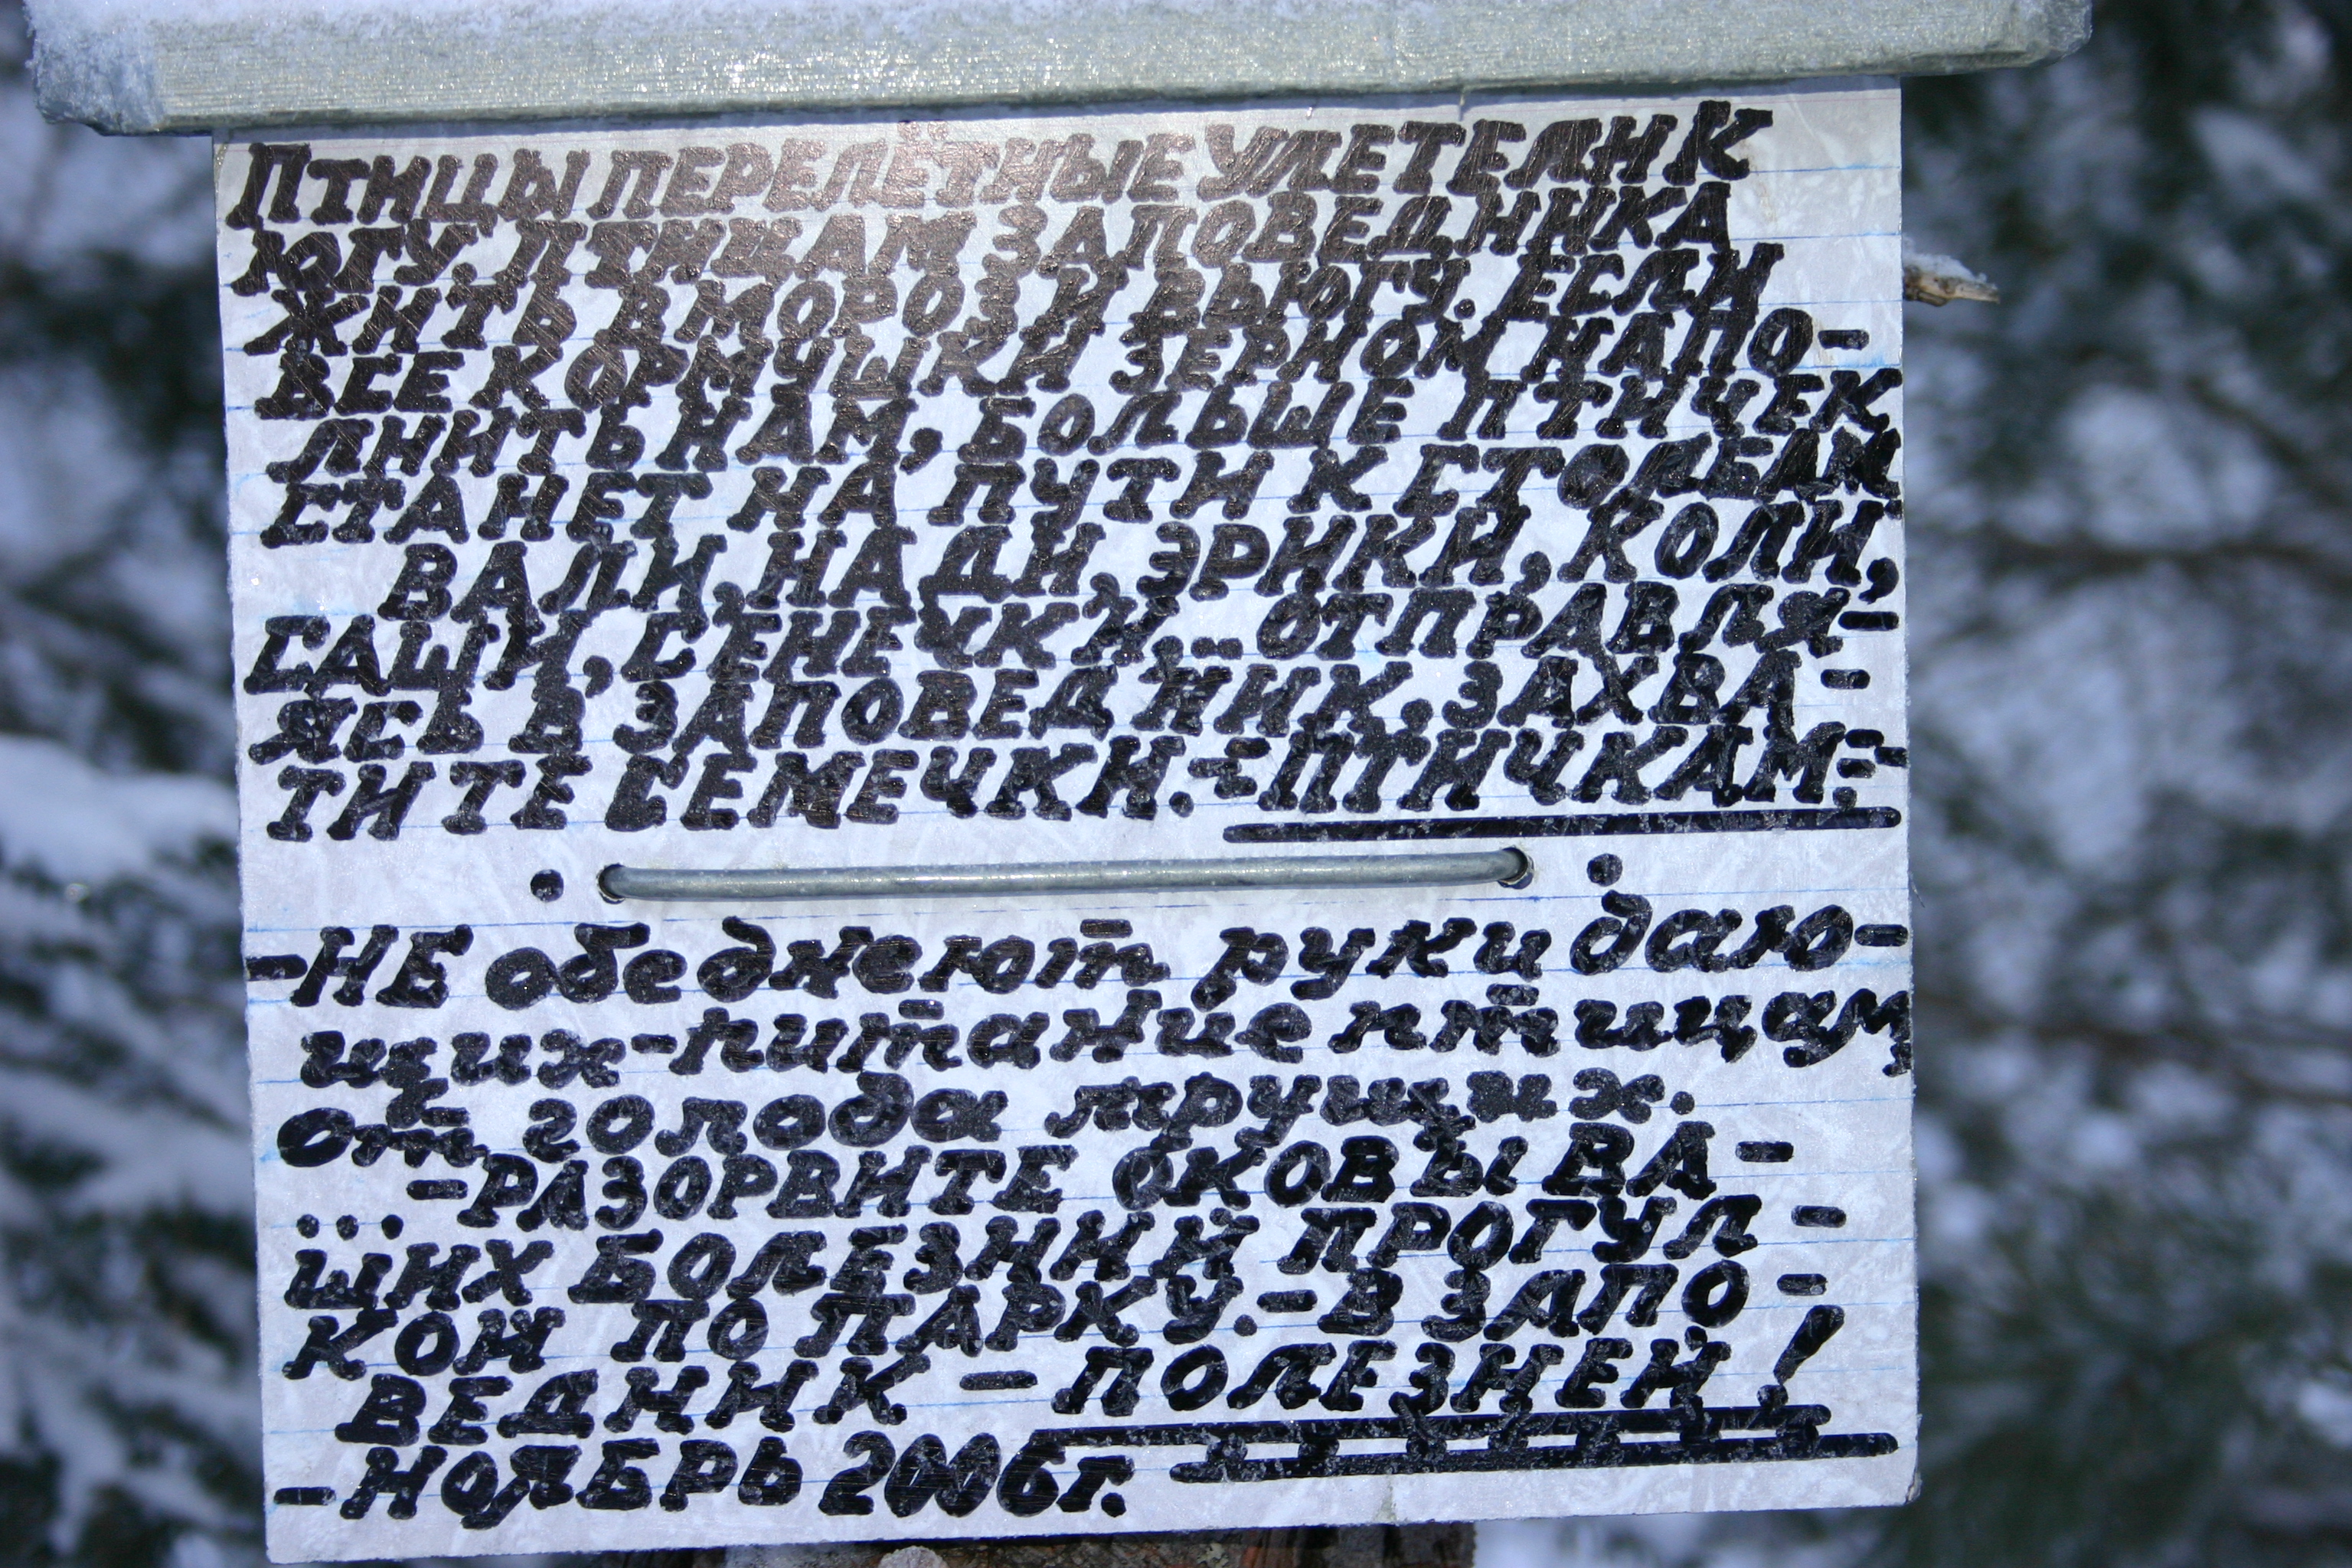 ПТИЦЫ ПЕРЕЛЁТНЫЕ УЛЕТЕЛИ К
ЮГУ. ПТИЦАМ ЗАПОВЕДНИКА
ЖИТЬ В МОРОЗ И ВЬЮГУ. ЕСЛИ
ВСЕ КОРМУШКИ ЗЕРНОМ НАПО-
ЛНИТЬ НАМ, БОЛЬШЕ ПТИЧЕК
СТАНЕТ НА ПУТИ К
ВАЛИ, НАДИ, ЭРИКИ, КОЛИ,
САШИ, СЕНЕЧКИ... ОТПРАВЛЯ-
ЯСЬ В ЗАПОВЕДНИК. ЗАХВА-
ТИТЕ СЕМЕЧКИ. - ПТИЧКАМ-
-НЕ обеднеют руки даю-
щих-питание птицам,
от голода мрущих.
-РАЗОРВИТЕ ОКОВЫ ВА-
ШИХ БОЛЕЗНИЙ ПРОГУЛ-
КОЙ ПО ПАРКУ.-В ЗАПО-
ВЕДНИК - ПОЛЕЗНЕЙ!
-НОЯБРЬ 2006г.